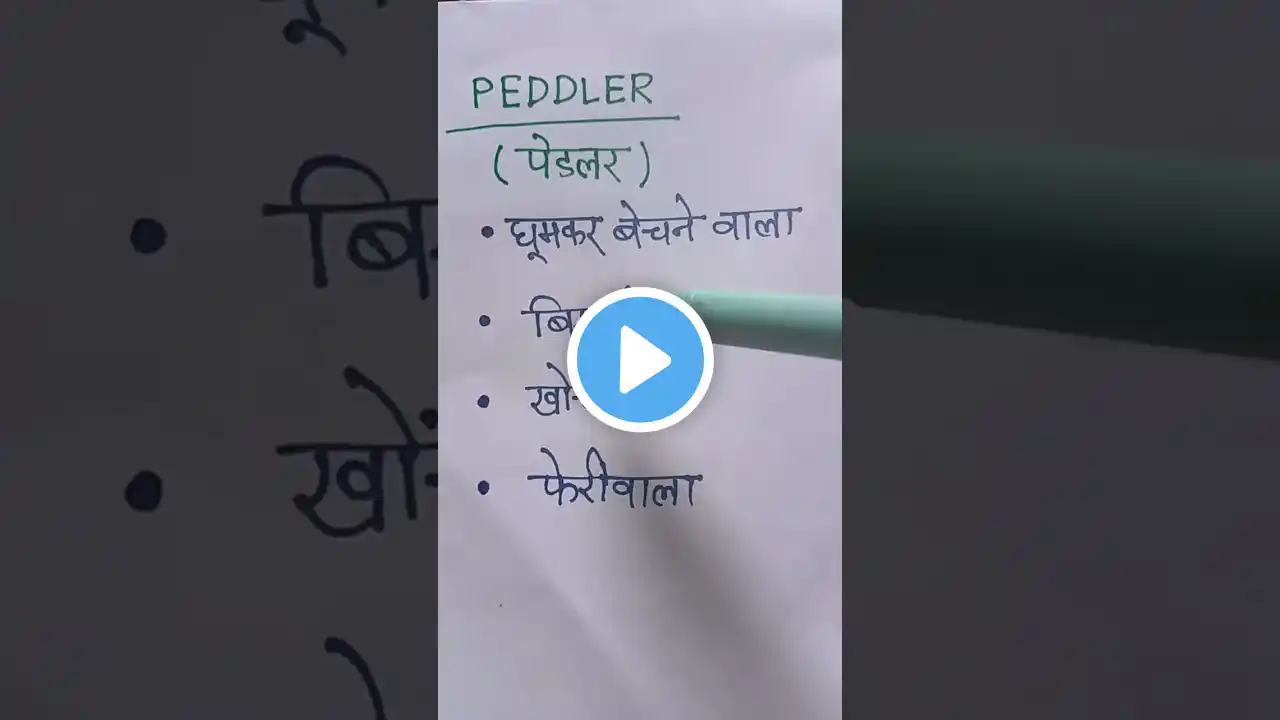 PEDDLER
(पेडलर)
• घूमकर बेचने वाला
•
•
• फेरीवाला